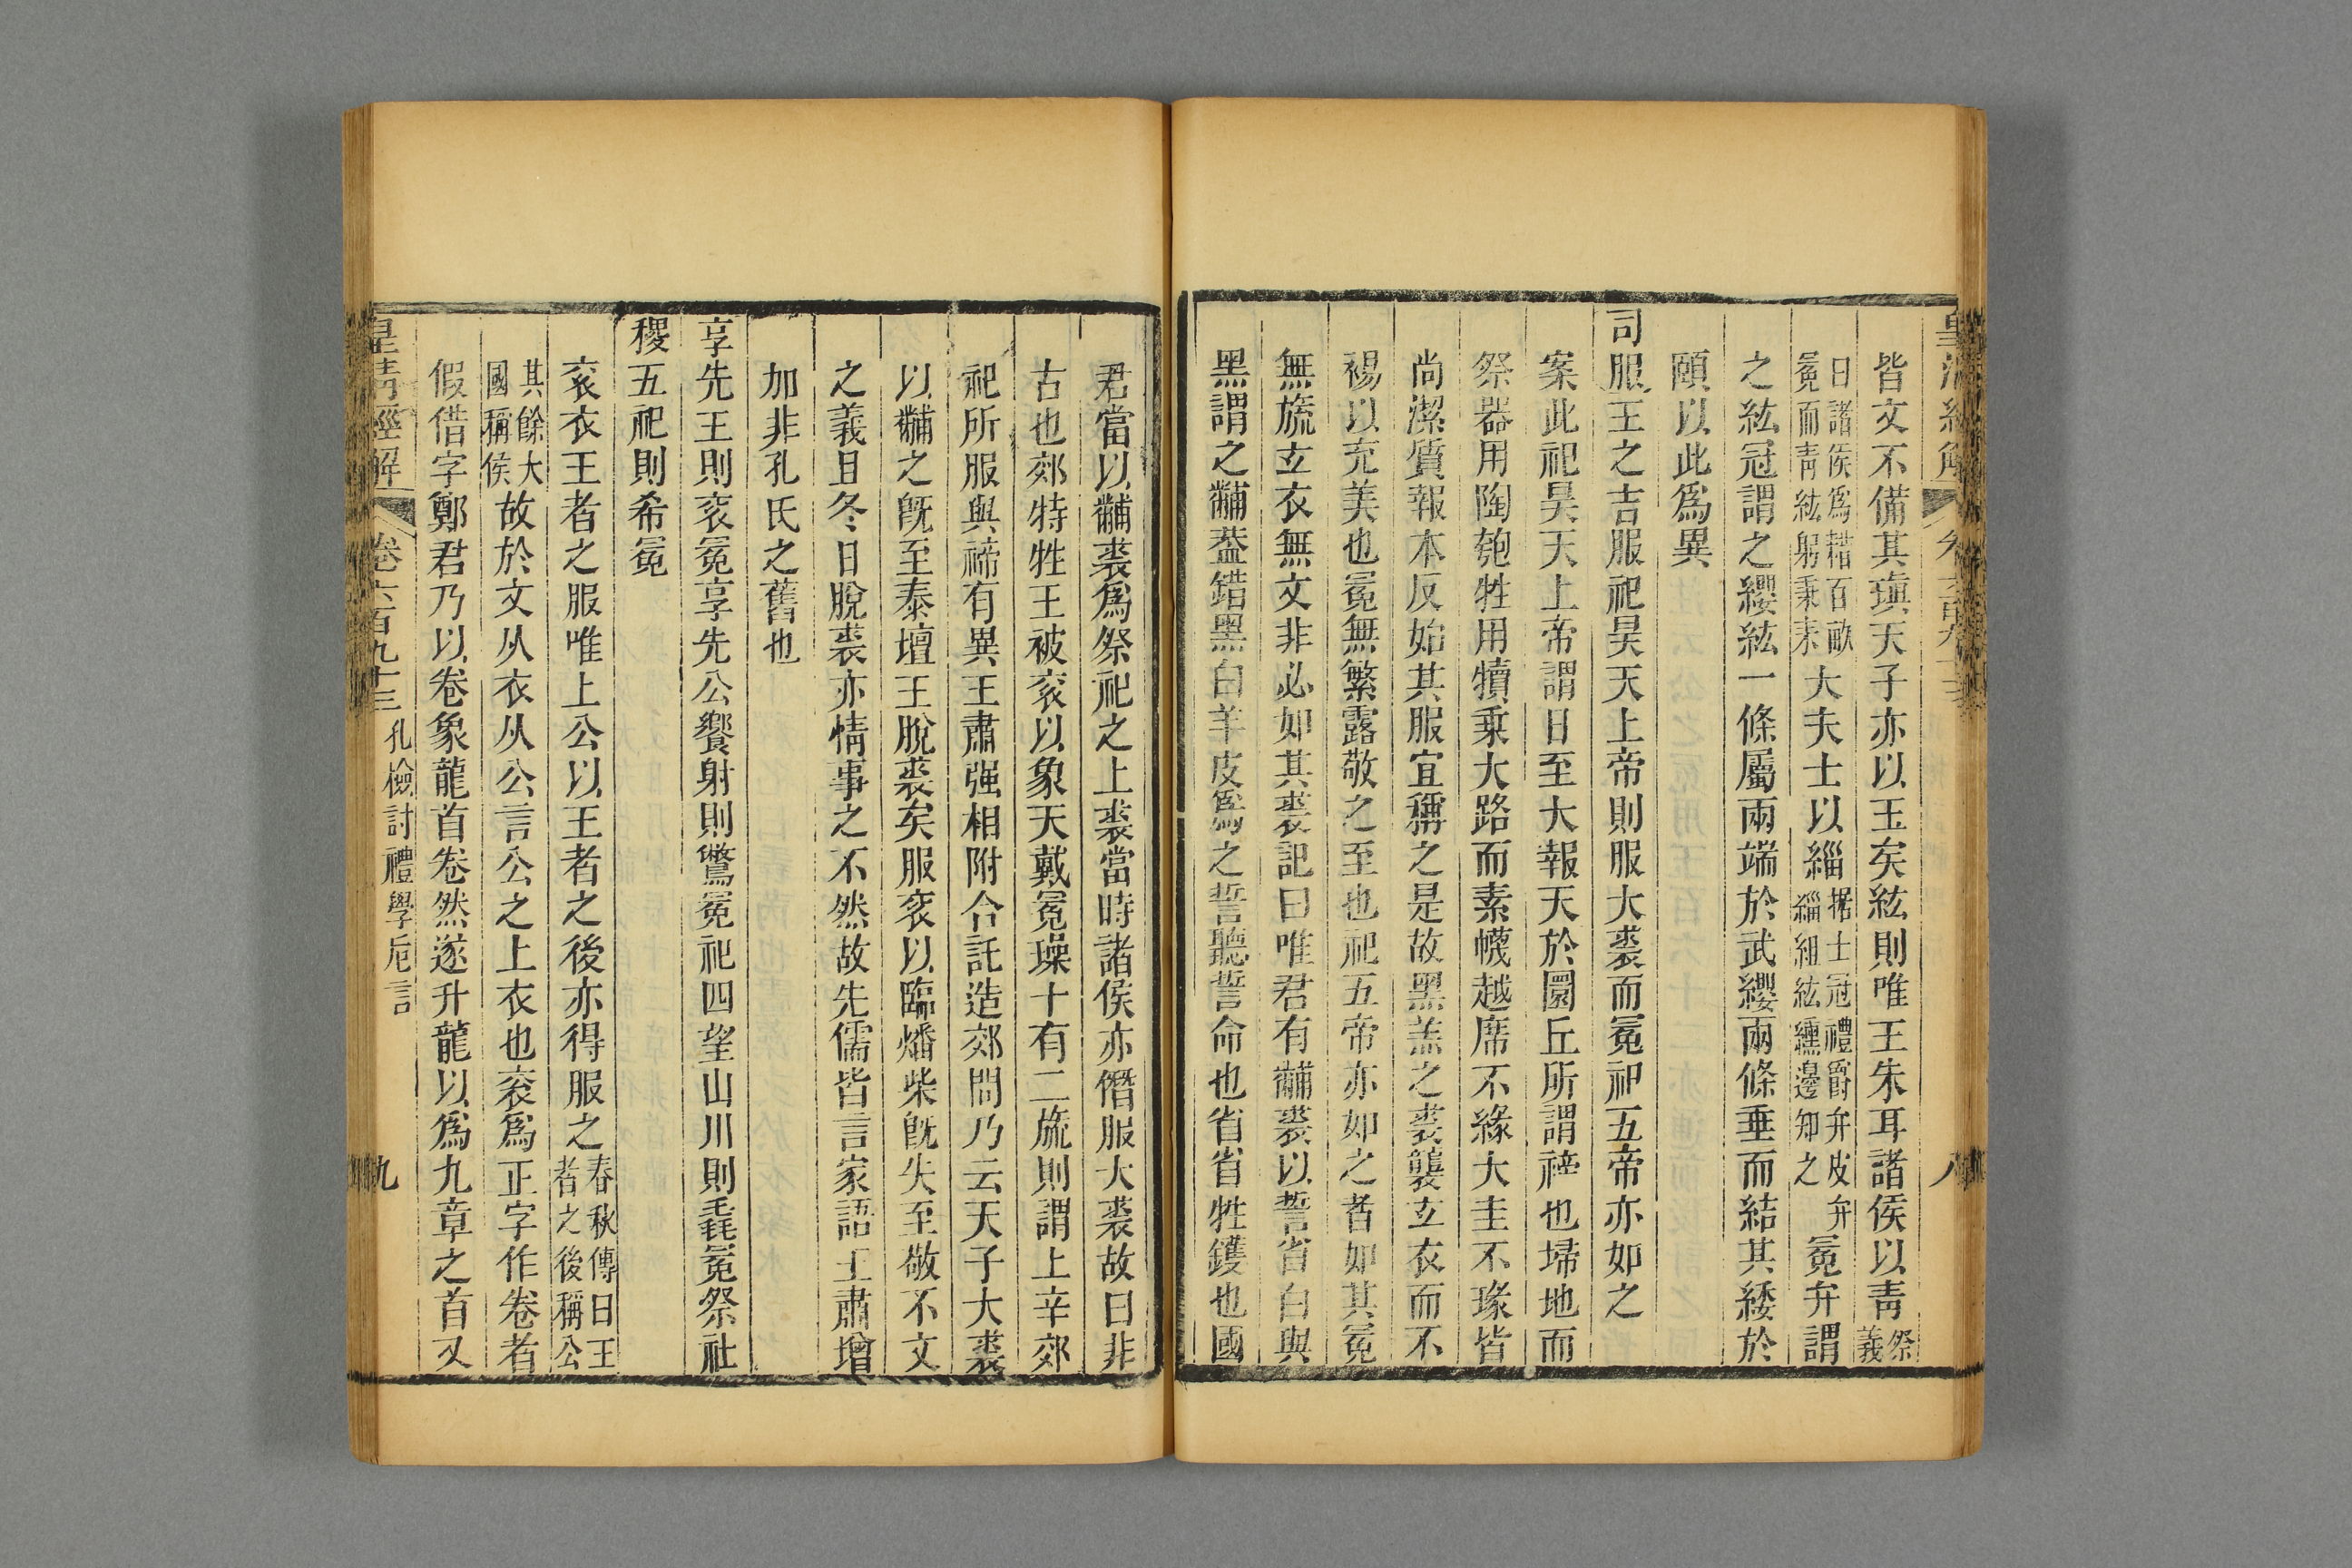 皆文不備其瑱天子亦以玉矣紘則唯王朱耳諸侯以青祭義
曰諸侯爲耤百畝冕而青紘躬秉耒大夫士以緇据士冠禮爵弁皮弁緇組紘纁邊知之冕弁謂
之紘冠謂之纓紘一條屬兩端於武纓兩條垂而結其緌於
頤以此爲異
司服王之吉服祀昊天上帝則服大裘而冕祀五帝亦如之
案此祀昊天上帝謂日至大報天於圜丘所謂禘也埽地而
祭器用陶匏牲用犢乗大路而素幭越席不緣大圭不瑑皆
尚潔質報本反始其服宜稱之是故黑羔之裘襲玄衣而不
裼以充美也冕無繁露敬之至也祀五帝亦如之者如其冕
無旒玄衣無文非必如其裘記曰唯君有黼裘以誓省白與
黑謂之黼葢錯黑白羊皮爲之誓聽誓命也省省牲鑊也國
君當以黼裘爲祭祀之上裘當時諸侯亦僭服大裘故曰非
古也郊特牲王被衮以象天戴冕璪十有二旒則謂上辛郊
祀所服與禘有異王肅强相附合託造郊問乃云天子大裘
以黼之旣至泰壇王脫裘矣服衮以臨燔柴旣失至敬不文
之義且冬日脫裘亦情事之不然故先儒皆言家語王肅增
加非孔氏之舊也
享先王則衮冕享先公饗射則鷩冕祀四望山川則毳冕祭社
稷五祀則希冕
衮衣王者之服唯上公以王者之後亦得服之春秋傳曰王者之後稱公
其餘大國稱侯故於文从衣从公言公之上衣也衮爲正字作卷者
假借字鄭君乃以卷象龍首卷然遂升龍以爲九章之首又
皇清經解 卷六百九十三 孔檢討禮學卮言 九